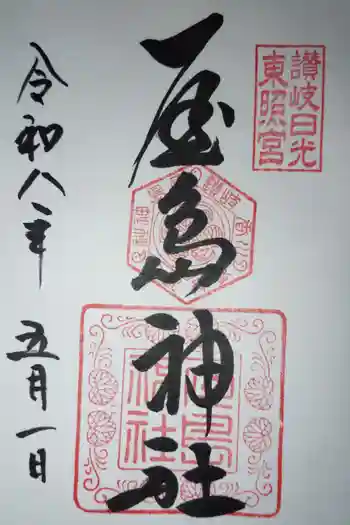 讃岐日光
東照宮
屋島神社
屋島
神社
令和八年 五月一日